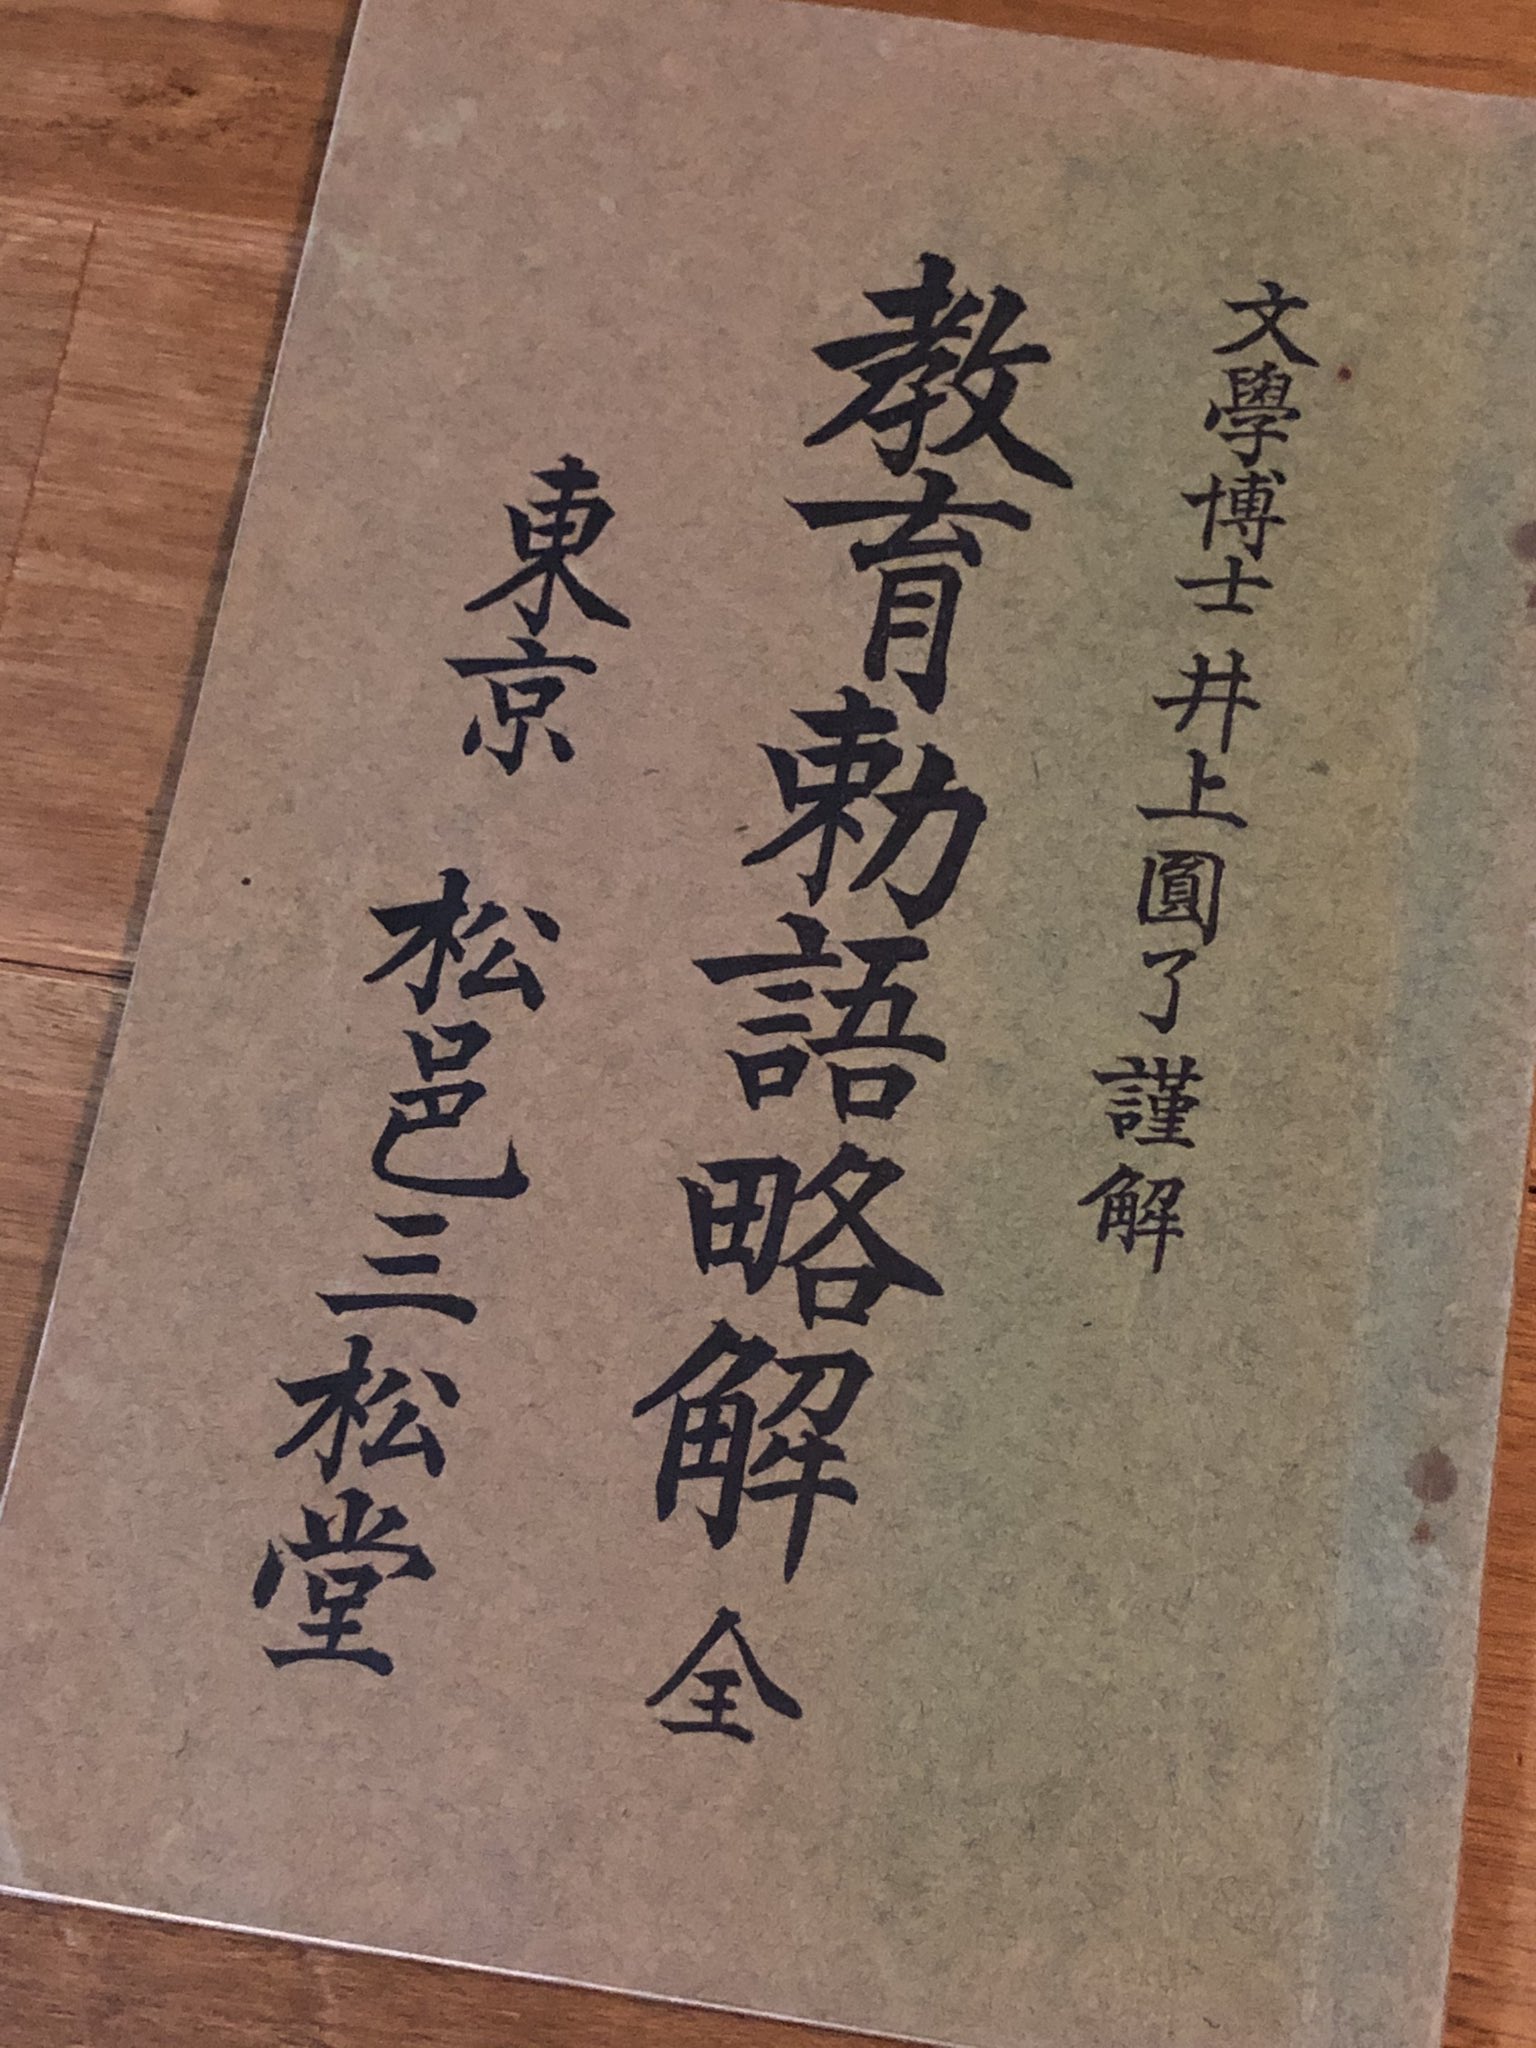 文學博士井上圓了謹解
教育勅語略解 全
東京 松邑三松堂